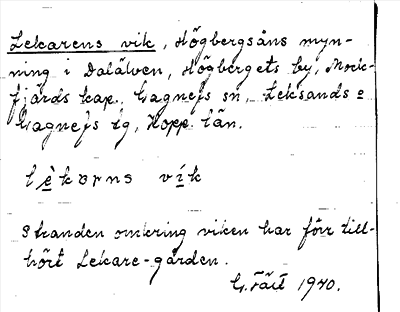 Lekarens vik, Högbergsåns myn-
ning i Dalälven, Högbergets by, Mock-
fjärds kap., Gagnefs sn, Leksands o
Gagnefs tg, Kopp. län.
lèkarns vík
Stranden omkring viken har förr till-
hört Lekare-gården.
1940.